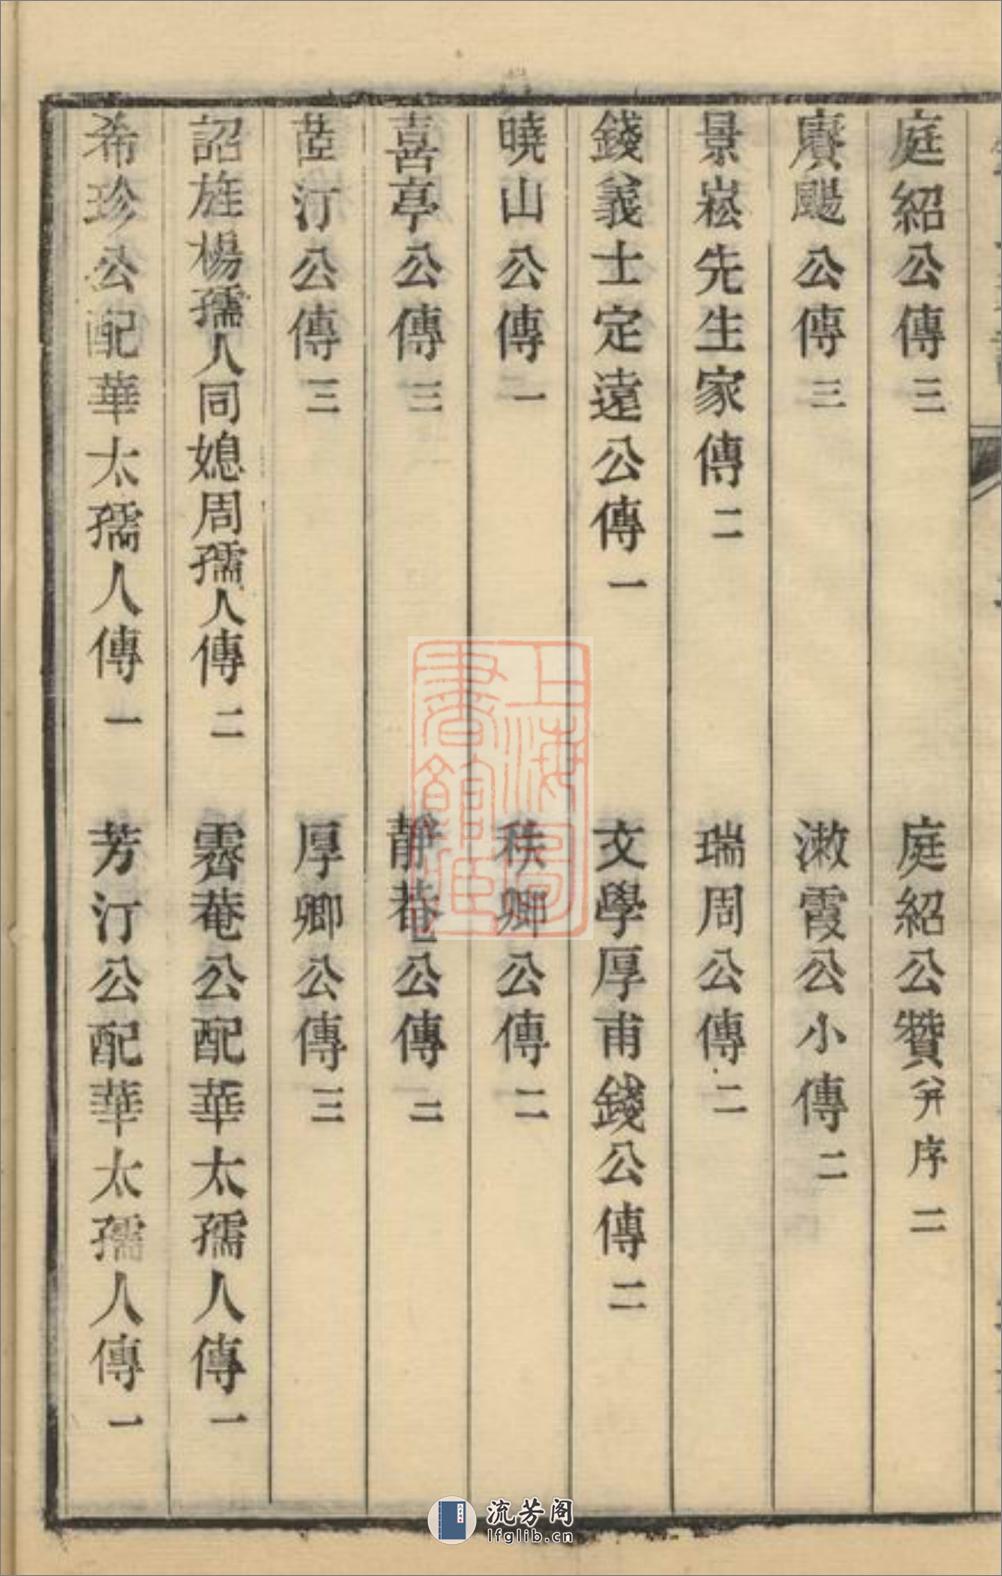 庭紹公傳三　庭紹公贊并序二
賡颺公傳三　漱霞公小傳二
景崧先生家傳二　瑞周公傳二
錢義士定遠公傳一　文學厚甫錢公傳二
曉山公傳一　秩卿公傳二
喜亭公傳三　靜菴公傳二
茝汀公傳三　厚卿公傳三
詔旌楊孺人同媳周孺人傳二　霽菴公配華太孺人傳一
希珍公配華太孺人傳一　芳汀公配華太孺人傳一
上海圖書館藏
流芳阁
lfglib.cn